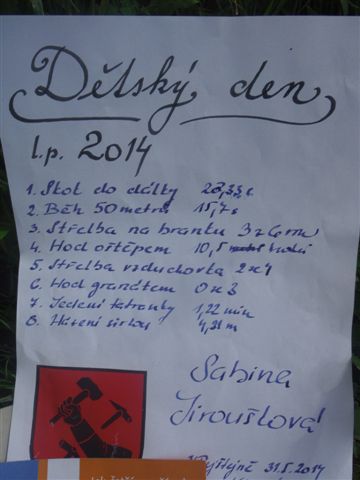 Dětský den
l.p. 2014
1. Skok do dálky
2. Běh 50 metrů 15,7s
3. Střelba na branku 3 z 6
4. Hod oštěpem 10,5
5. Střelba vzduchovka 2x4
6. Hod granátem 0x3
7. Jedení tatranky 1,22 min
8. Házení šiškou 4,31m
Sabina
Jiroušťová
31.5.2014